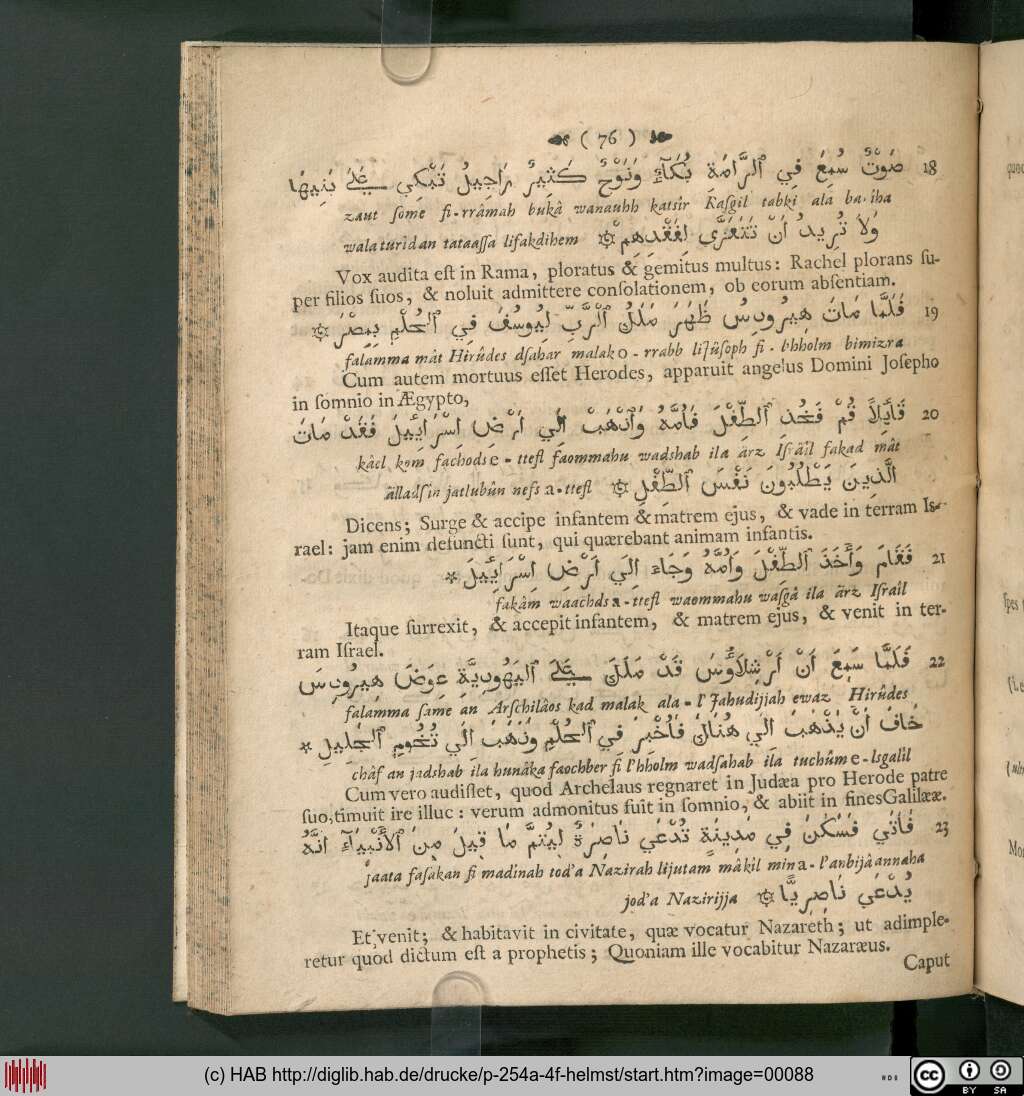 ( 76 )
18 صَوْتٌ سُمِعَ فِي ٱلرَّامَةِ بُكَآءٌ وَنَوْحٌ كَثِيرٌ رَاحِيلُ تَبْكِي عَلَي بَنِيهَا
zaut ſome fi-rrâmah bukâ wanauhh katsîr Raſgil tabki alâ ba-iha
وَلاَ تُرِيدُ اَنْ تَتَعَزَّي لِفَقْدِهِمْ
wala turîdan tataaſſa lifakdihem
Vox audita eſt in Rama, ploratus & gemitus multus: Rachel plorans ſu-
per filios ſuos, & noluit admittere conſolationem, ob eorum abſentiam.
19 فَلَمَّا مَاتَ هِيرُودِسُ ظَهَرَ مَلَكُ ٱلْرَّبِّ لِيُوسُفَ فِي ٱلْحُلْمِ بِمِصْرَ
falamma mât Hirûdes dſahar malako-rrabb liJûſoph fi-lhholm bimizra
Cum autem mortuus eſſet Herodes, apparuit angelus Domini Joſepho
in ſomnio in Ægypto,
20 قَايِلاً قُمْ فَخُذِ ٱلطِّفْلَ فَاُمَّهُ وَٱذْهَبْ اِلَي اَرْضِ اِسْرَايِيلَ فَقَدْ مَاتَ
kâcl kom fachodse-ttefl faommahu wadshab ila ärz Iſräil fakad mât
الَّذِينَ يَطْلُبُونَ نَفْسَ ٱلطِّفْلِ
älladſin jatlubûn nefs a-ttefl
Dicens; Surge & accipe infantem & matrem ejus, & vade in terram Is-
rael: jam enim defuncti ſunt, qui quærebant animam infantis.
21 فَقَامَ وَأَخَذَ ٱلطِّفْلَ وَاُمَّهُ وَجَاءَ اِلَي اَرْضِ اِسْرَايِيلَ
fakâm waachds a-ttefl waommahu waſgâ ila ärz Iſraîl
Itaque ſurrexit, & accepit infantem, & matrem ejus, & venit in ter-
ram Iſrael.
22 فَلَمَّا سَمِعَ اَنْ اَرْشِلاَوُسَ قَدْ مَلَكَ عَلَي ٱلْيَهُودِيَّةِ عِوَضَ هِيرُودِسَ
falamma ſame an Arſchilàos kad malak ala-l'Jahudijjah ewaz Hirûdes
خَافَ اَنْ يَذْهَبَ اِلَي هُنَاكَ فَاُخْبِرَ فِي ٱلْحُلْمِ وَذَهَبَ اِلَي تُخُومِ ٱلْجَلِيلِ
châf an jadshab ila hunâka faochber fi l'hholm wadſahab ila tuchûme-lsgalîl
Cum vero audiſſet, quod Archelaus regnaret in Judæa pro Herode patre
ſuo, timuit ire illuc: verum admonitus fuit in ſomnio, & abiit in fines Galilææ.
23 فَأَتَي فَسَكَنَ فِي مَدِينَةٍ تُدْعَي نَاصِرَةُ لِيُتِمَّ مَا قِيلَ مِنَ ٱلاَنْبِيَآءِ اَنَّهُ
jaata faſakan fi madinah tod'a Nazirah lijutam mâkil mina-l'anbijâ annaha
يُدْعَي نَاصِرِيًّا
jod'a Nazirijja
Et venit; & habitavit in civitate, quæ vocatur Nazareth; ut adimple-
retur quod dictum eſt a prophetis; Quoniam ille vocabitur Nazaræus.
Caput
(c) HAB http://diglib.hab.de/drucke/p-254a-4f-helmst/start.htm?image=00088
cc BY SA